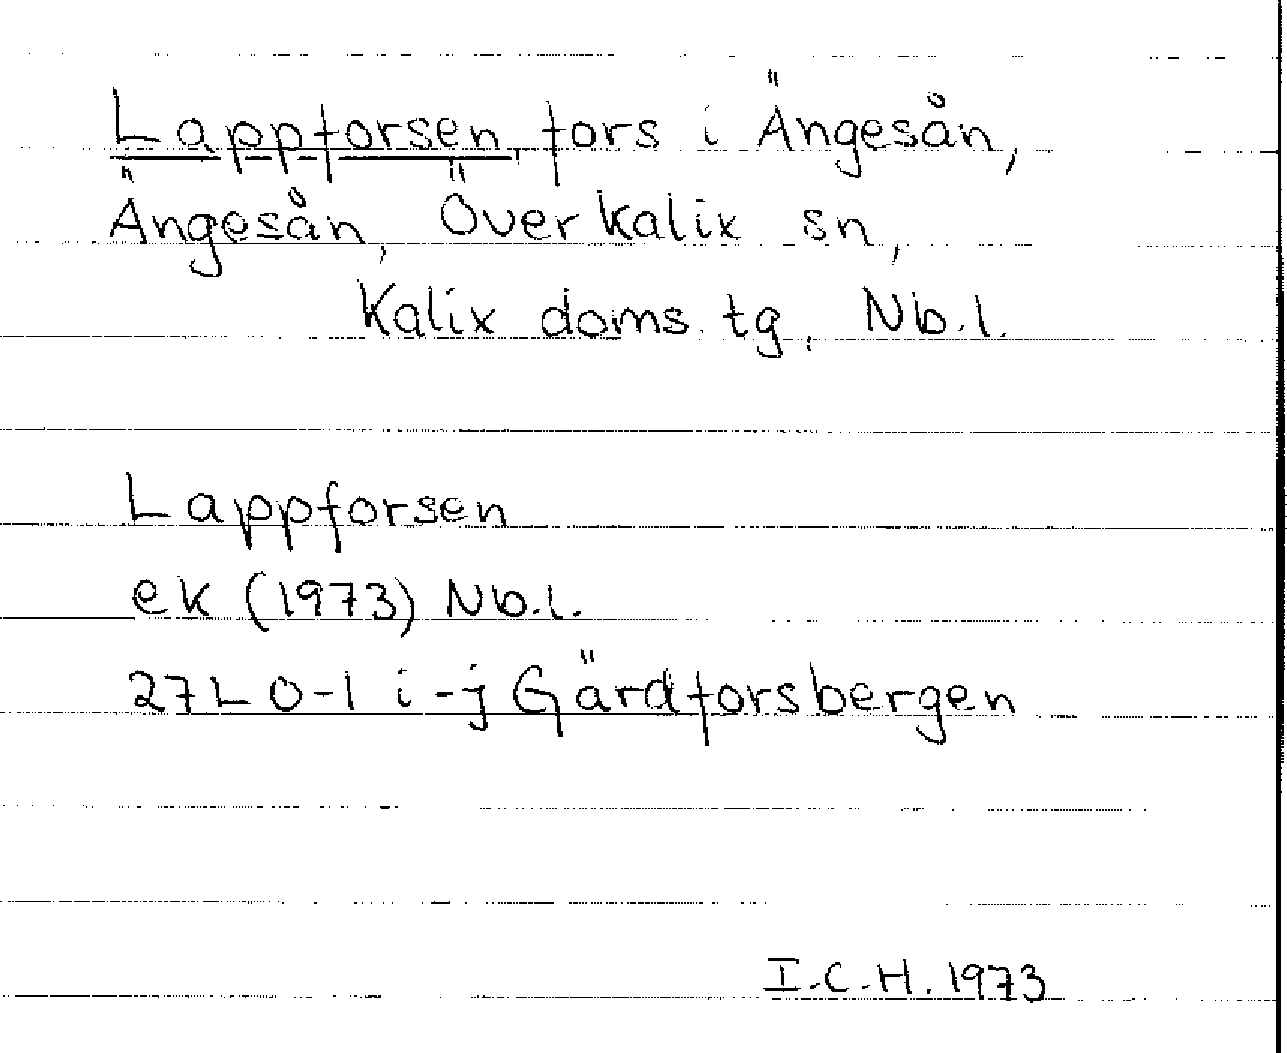 Lappforsen, fors i Ängesån,
Ängesån, Överkalix sn,
Kalix doms.tg, Nb.l.
Lappforsen
ek (1973) Nb.l.
27L 0-1 i-j Gärdforsbergen
I.C.H. 1973